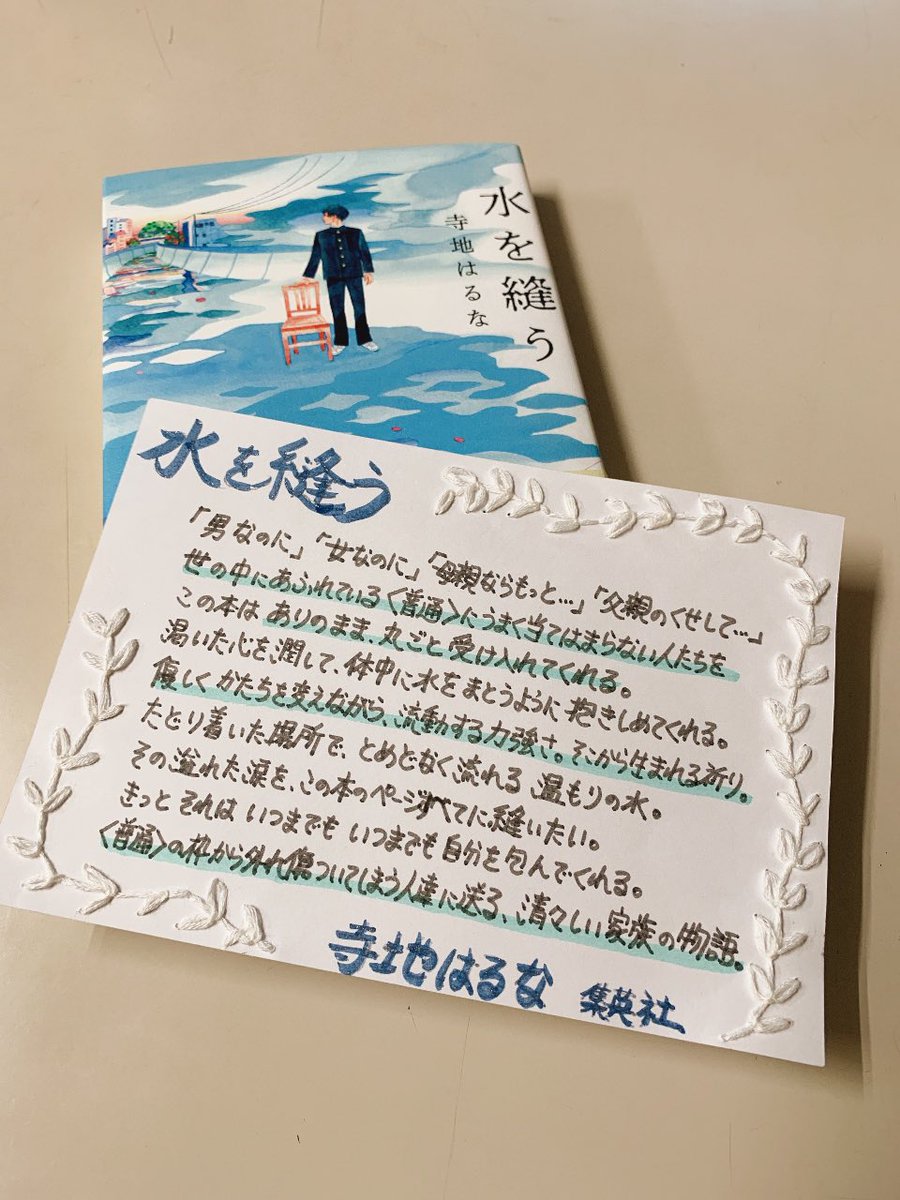 水を縫う
寺地はるな
水を縫う
「男なのに」「女なのに」「母親ならもっと…」「父親のくせして…」
世の中にあふれている〈普通〉にうまく当てはまらない人たちを
この本はありのまま丸ごと受け入れてくれる。
渇いた心を潤して、体中に水をまとうように抱きしめてくれる。
優しくかたちを変えながら、流動する力強さ。そこから生まれる祈り。
たどり着いた場所で、とめどなく流れる温もりの水。
その溢れた涙を、この本のページすべてに縫いたい。
きっとそれはいつまでもいつまでも自分を包んでくれる。
〈普通〉の枠から外れ傷ついてしまう人達に送る、清々しい家族の物語。
寺地はるな 集英社